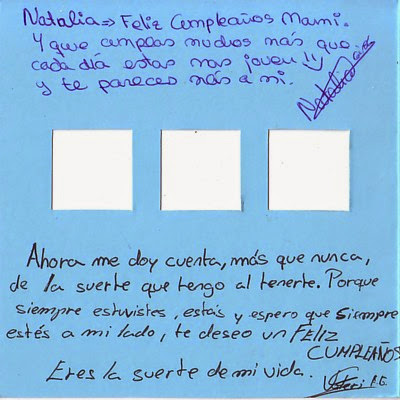 Natalia⇒ Feliz Cumpleaños Mami.
Y que cumplas muchos más que
cada día estas mas joven!!
y te pareces más a mi.
Natalia
Ahora me doy cuenta, más que nunca,
de la suerte que tengo al tenerte. Porque
siempre estuvistes, estás y espero que siempre
estés a mi lado, te deseo un FELIZ
CUMPLEAÑOS
Eres la suerte de mi vida.